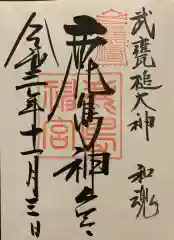 武甕槌大神 和魂
鹿島神宮
令和二年十一月三日